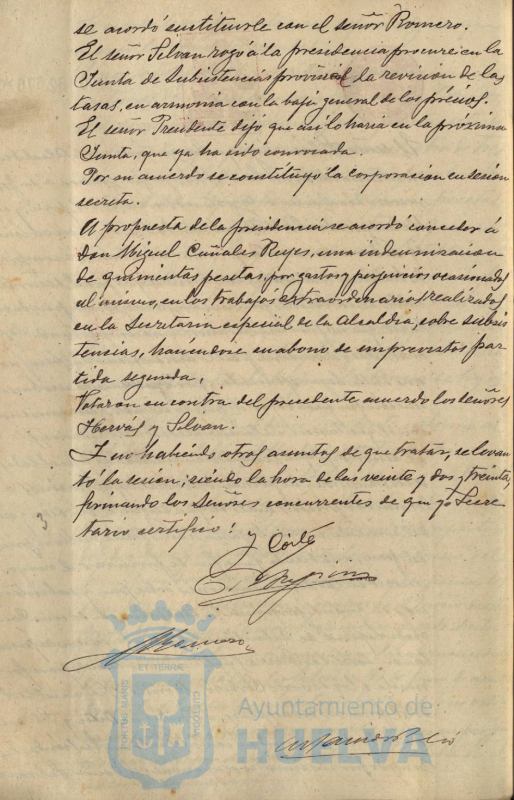 se acordó sustituirle con el señor Romero.
El señor Silvan rogó á la presidencia procure en la
Junta de Subsistencias provincial la revision de las
tasas, en armonia con la baja general de los précios.
El señor Presidente dijo que asi lo haria en la próxima
Junta, que ya ha sido convocada.
Por su acuerdo se constituyo la corporacion en sesion
secreta.
A propuesta de la presidencia se acordó conceder á
Don Miguel Cañales Reyes, una indemnizacion
de quinientas pesetas, por gastos y perjuicios ocasionados
al mismo, en los trabajos extraordinarios realizados
en la Secretaria especial de la Alcaldia, sobre subsis
tencias, haciendose su abono de imprevistos par
tida segunda.
Votaron en contra del precedente acuerdo los señores
Hervás y Silvan.
I no habiendo otros asuntos de que tratar, se levan
tó la sesion; siendo la hora de las veinte y dos y treinta,
firmando los Señores concurrentes de que yo Secre
tario certifico!
y Corte
Romero
PORTUS MARIS
ET TERRAE
CUSTODIA
Ayuntamiento de
HUELVA